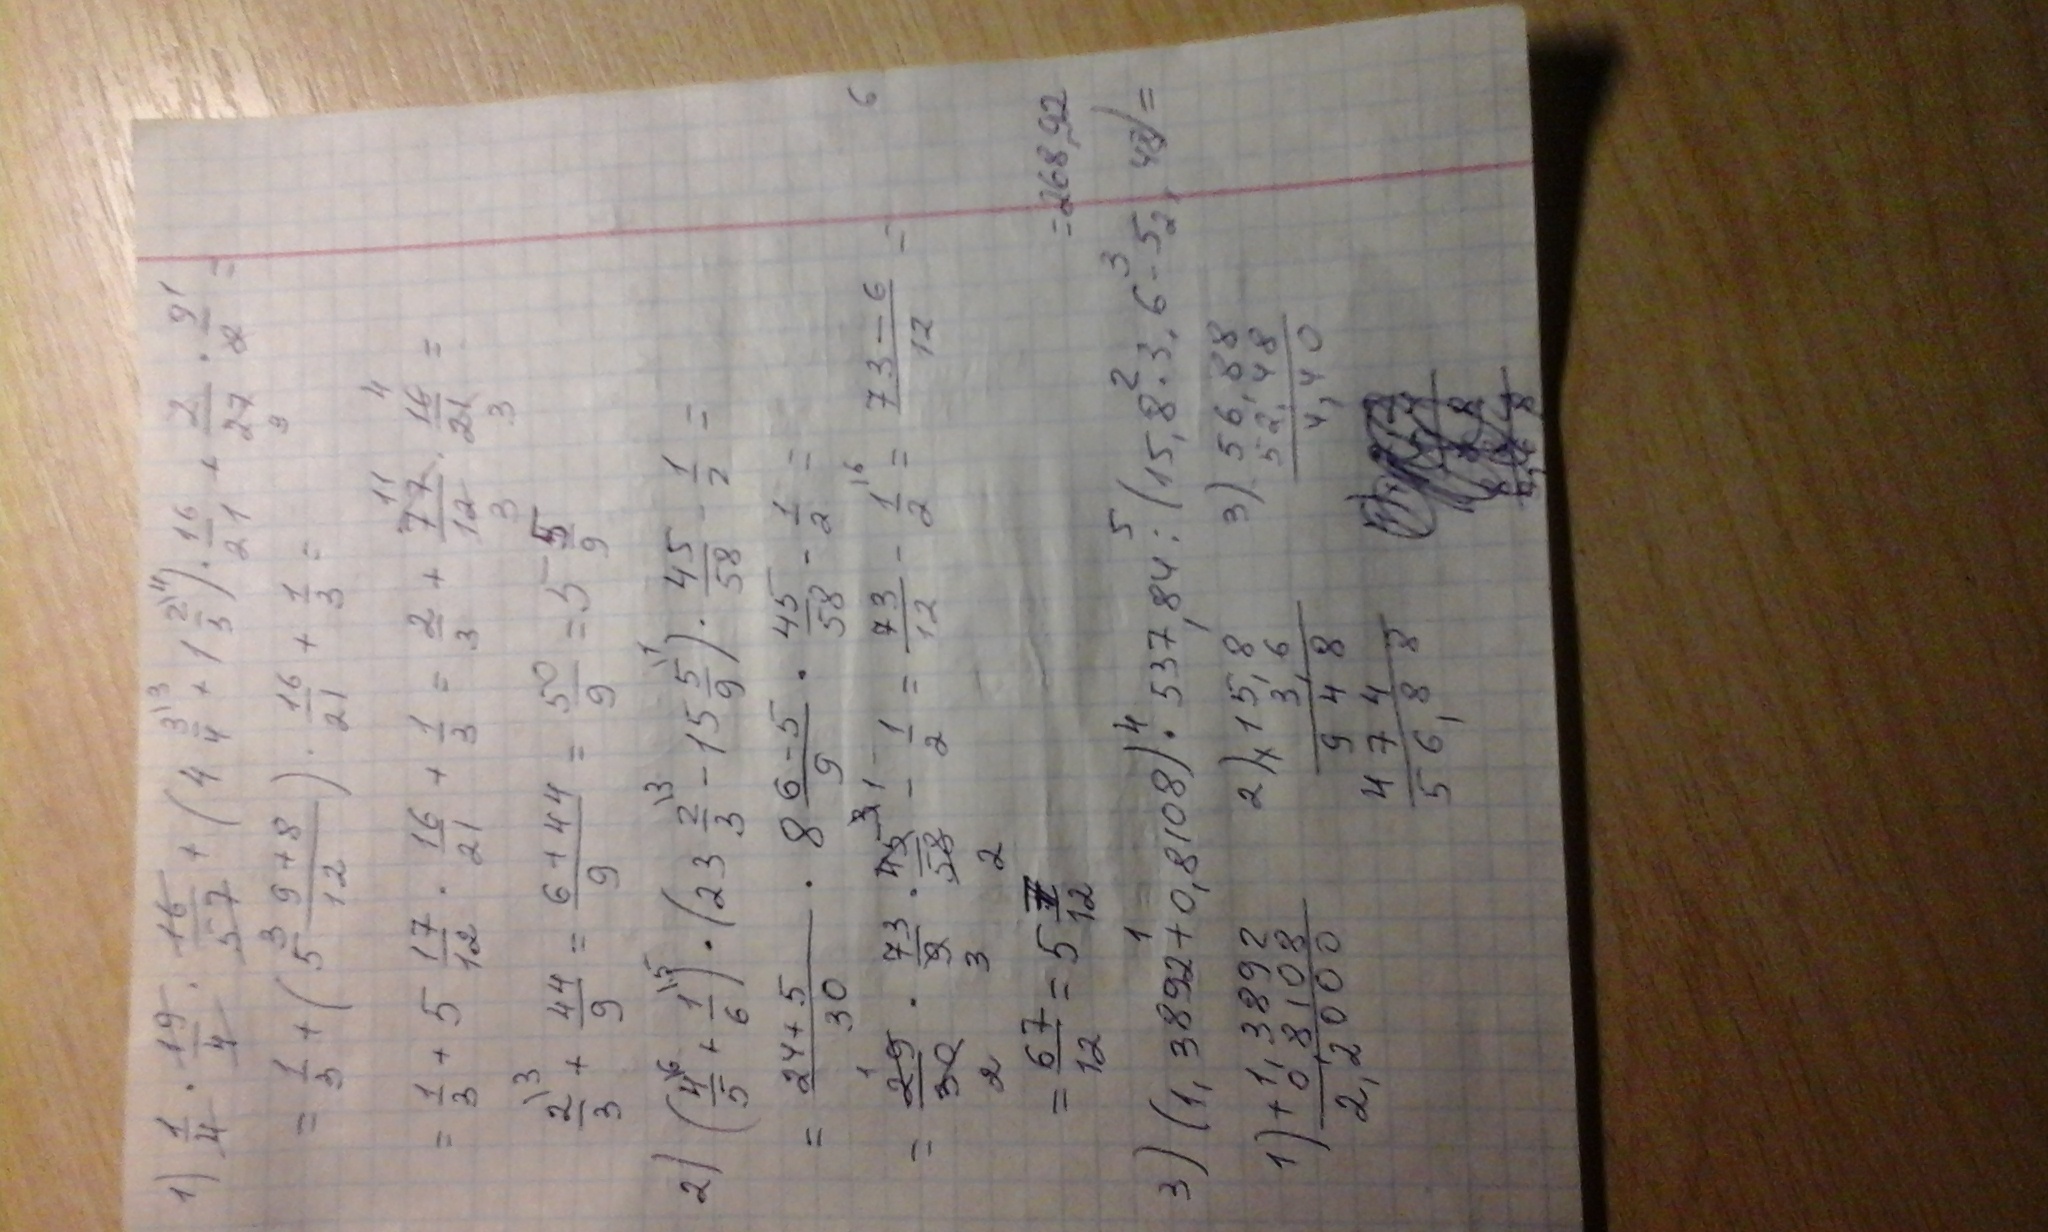 1) 1/4 · 19/4 · 16/57 + (4 3/4\3 + 1 2/3\4) · 16/21 + 2/27 · 9/2 =
= 1/3 + (5 9+8/12) · 16/21 + 1/3 =
= 1/3 + 5 17/12 · 16/21 + 1/3 = 2/3 + 77/12 · 16/21 =
2/3\3 + 44/9 = 6+44/9 = 50/9 = 5 5/9
2) (4/5\6 + 1/6\5) · (23 2/3\3 - 15 5/9\1) · 45/58 - 1/2 =
= 24+5/30 · 8 6-5/9 · 45/58 - 1/2 =
= 29/30 · 73/9 · 45/58 - 1/2 = 73/12 - 1/2\6 = 73-6/12 =
= 67/12 = 5 7/12
= 268,92
3) (1,3892 + 0,8108) · 537,84 : (15,8 · 3,6 - 52,48) =
1) + 1,3892
0,8108
2,2000
2) × 15,8
3,6
948
474
56,88
3) 56,88
52,48
4,40